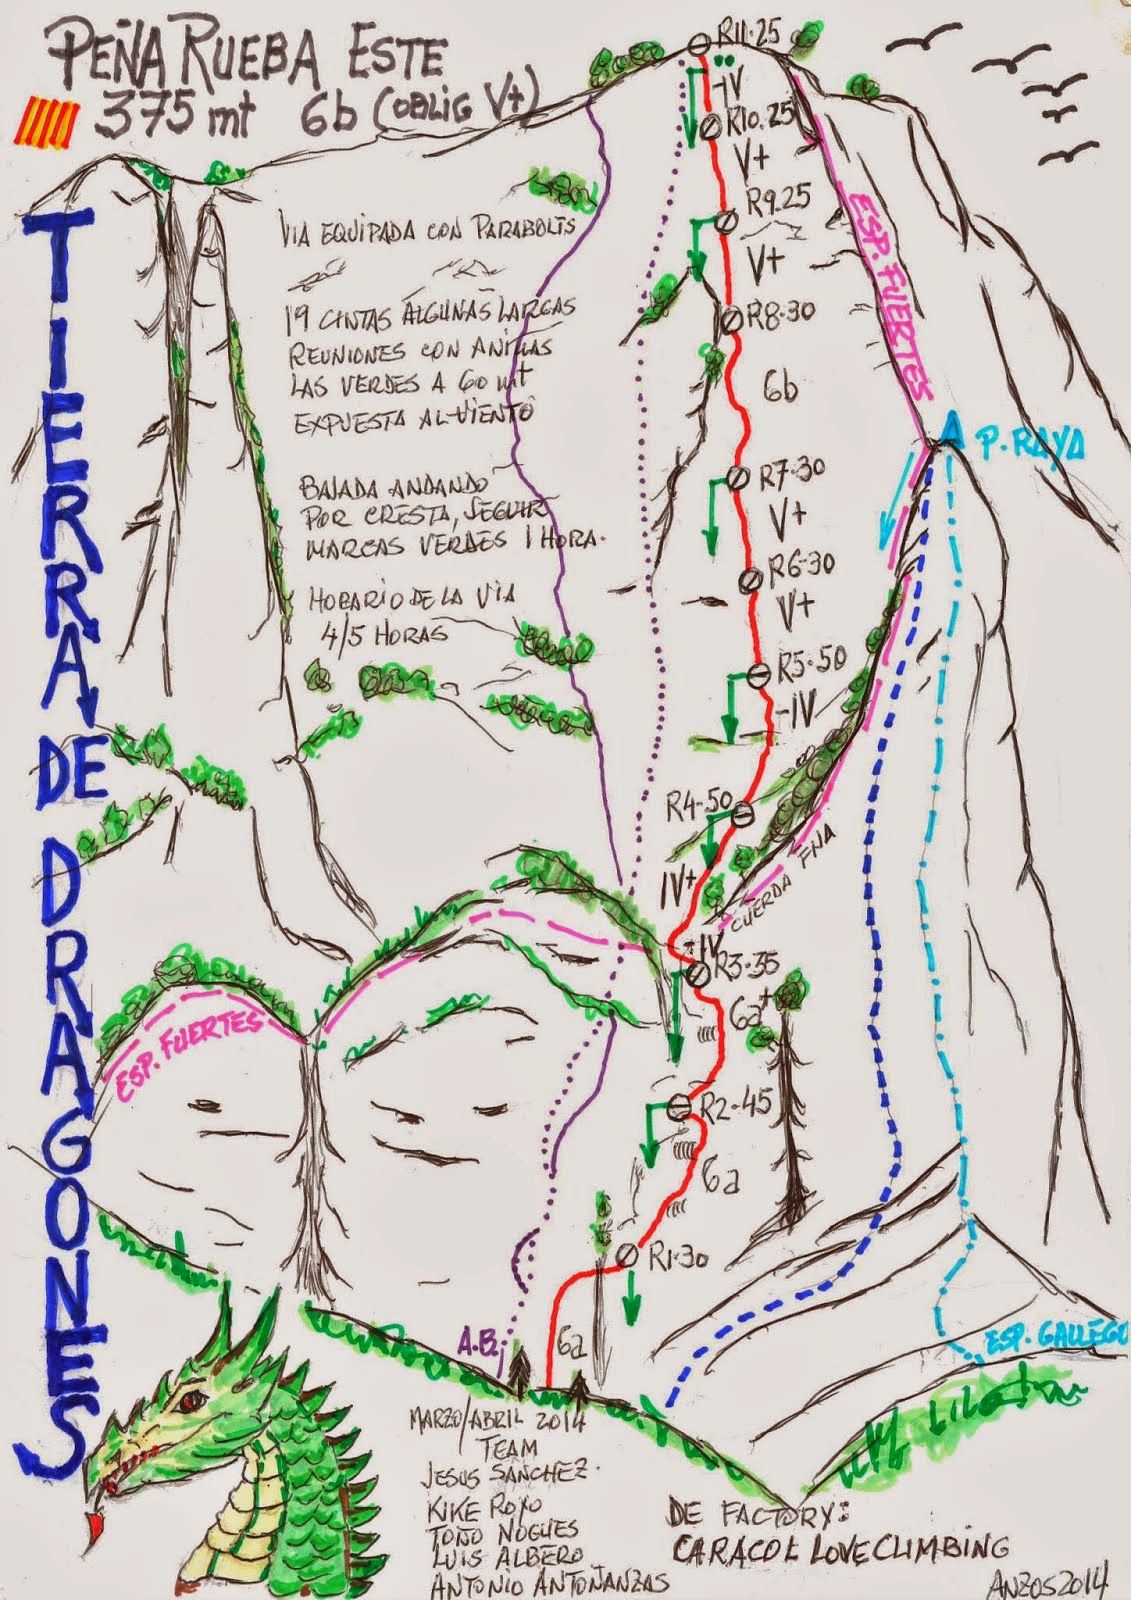 PEÑA RUEBA ESTE
375 mt 6b (OBLIG V+)
TIERRA DE DRAGONES
VIA EQUIPADA CON PARABOLTS
19 CINTAS ALGUNAS LARGAS
REUNIONES CON ANILLAS
LAS VERDES A 60 mt
EXPUESTA AL VIENTO
BAJADA ANDANDO
POR CRESTA, SEGUIR
MARCAS VERDES 1 HORA.
HORARIO DE LA VIA
4/5 HORAS
R11.25
-IV
R10.25
V+
R9.25
V+
R8.30
6b
R7.30
V+
R6.30
V+
R5.50
-IV
R4-50
IV+
-IV
R3.35
6a+
R2.45
6a
R1.30
6a
ESP. FUERTES
P. RAYA
CUERDA FIJA
ESP. FUERTES
A.B.
ESP. GALLEGO
MARZO/ABRIL 2014
TEAM
JESUS SANCHEZ.
KIKE ROYO
TOÑO NOGUES
LUIS ALBERO
ANTONIO ANTOÑANZAS
DE FACTORY:
CARACOL LOVECLIMBING
ANZOS2014